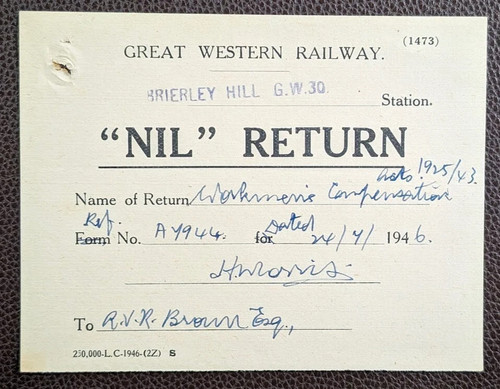 (1473)
GREAT WESTERN RAILWAY.
BRIERLEY HILL G.W.30. Station.
"NIL" RETURN
Acts 1925/43.
Name of Return Workmen's Compensation
Ref.
Form No. A7944. for Dated 24/7/1946.
H Morris
To R.V.R. Brown Esq.,
250,000-L.C-1946-(2Z) S